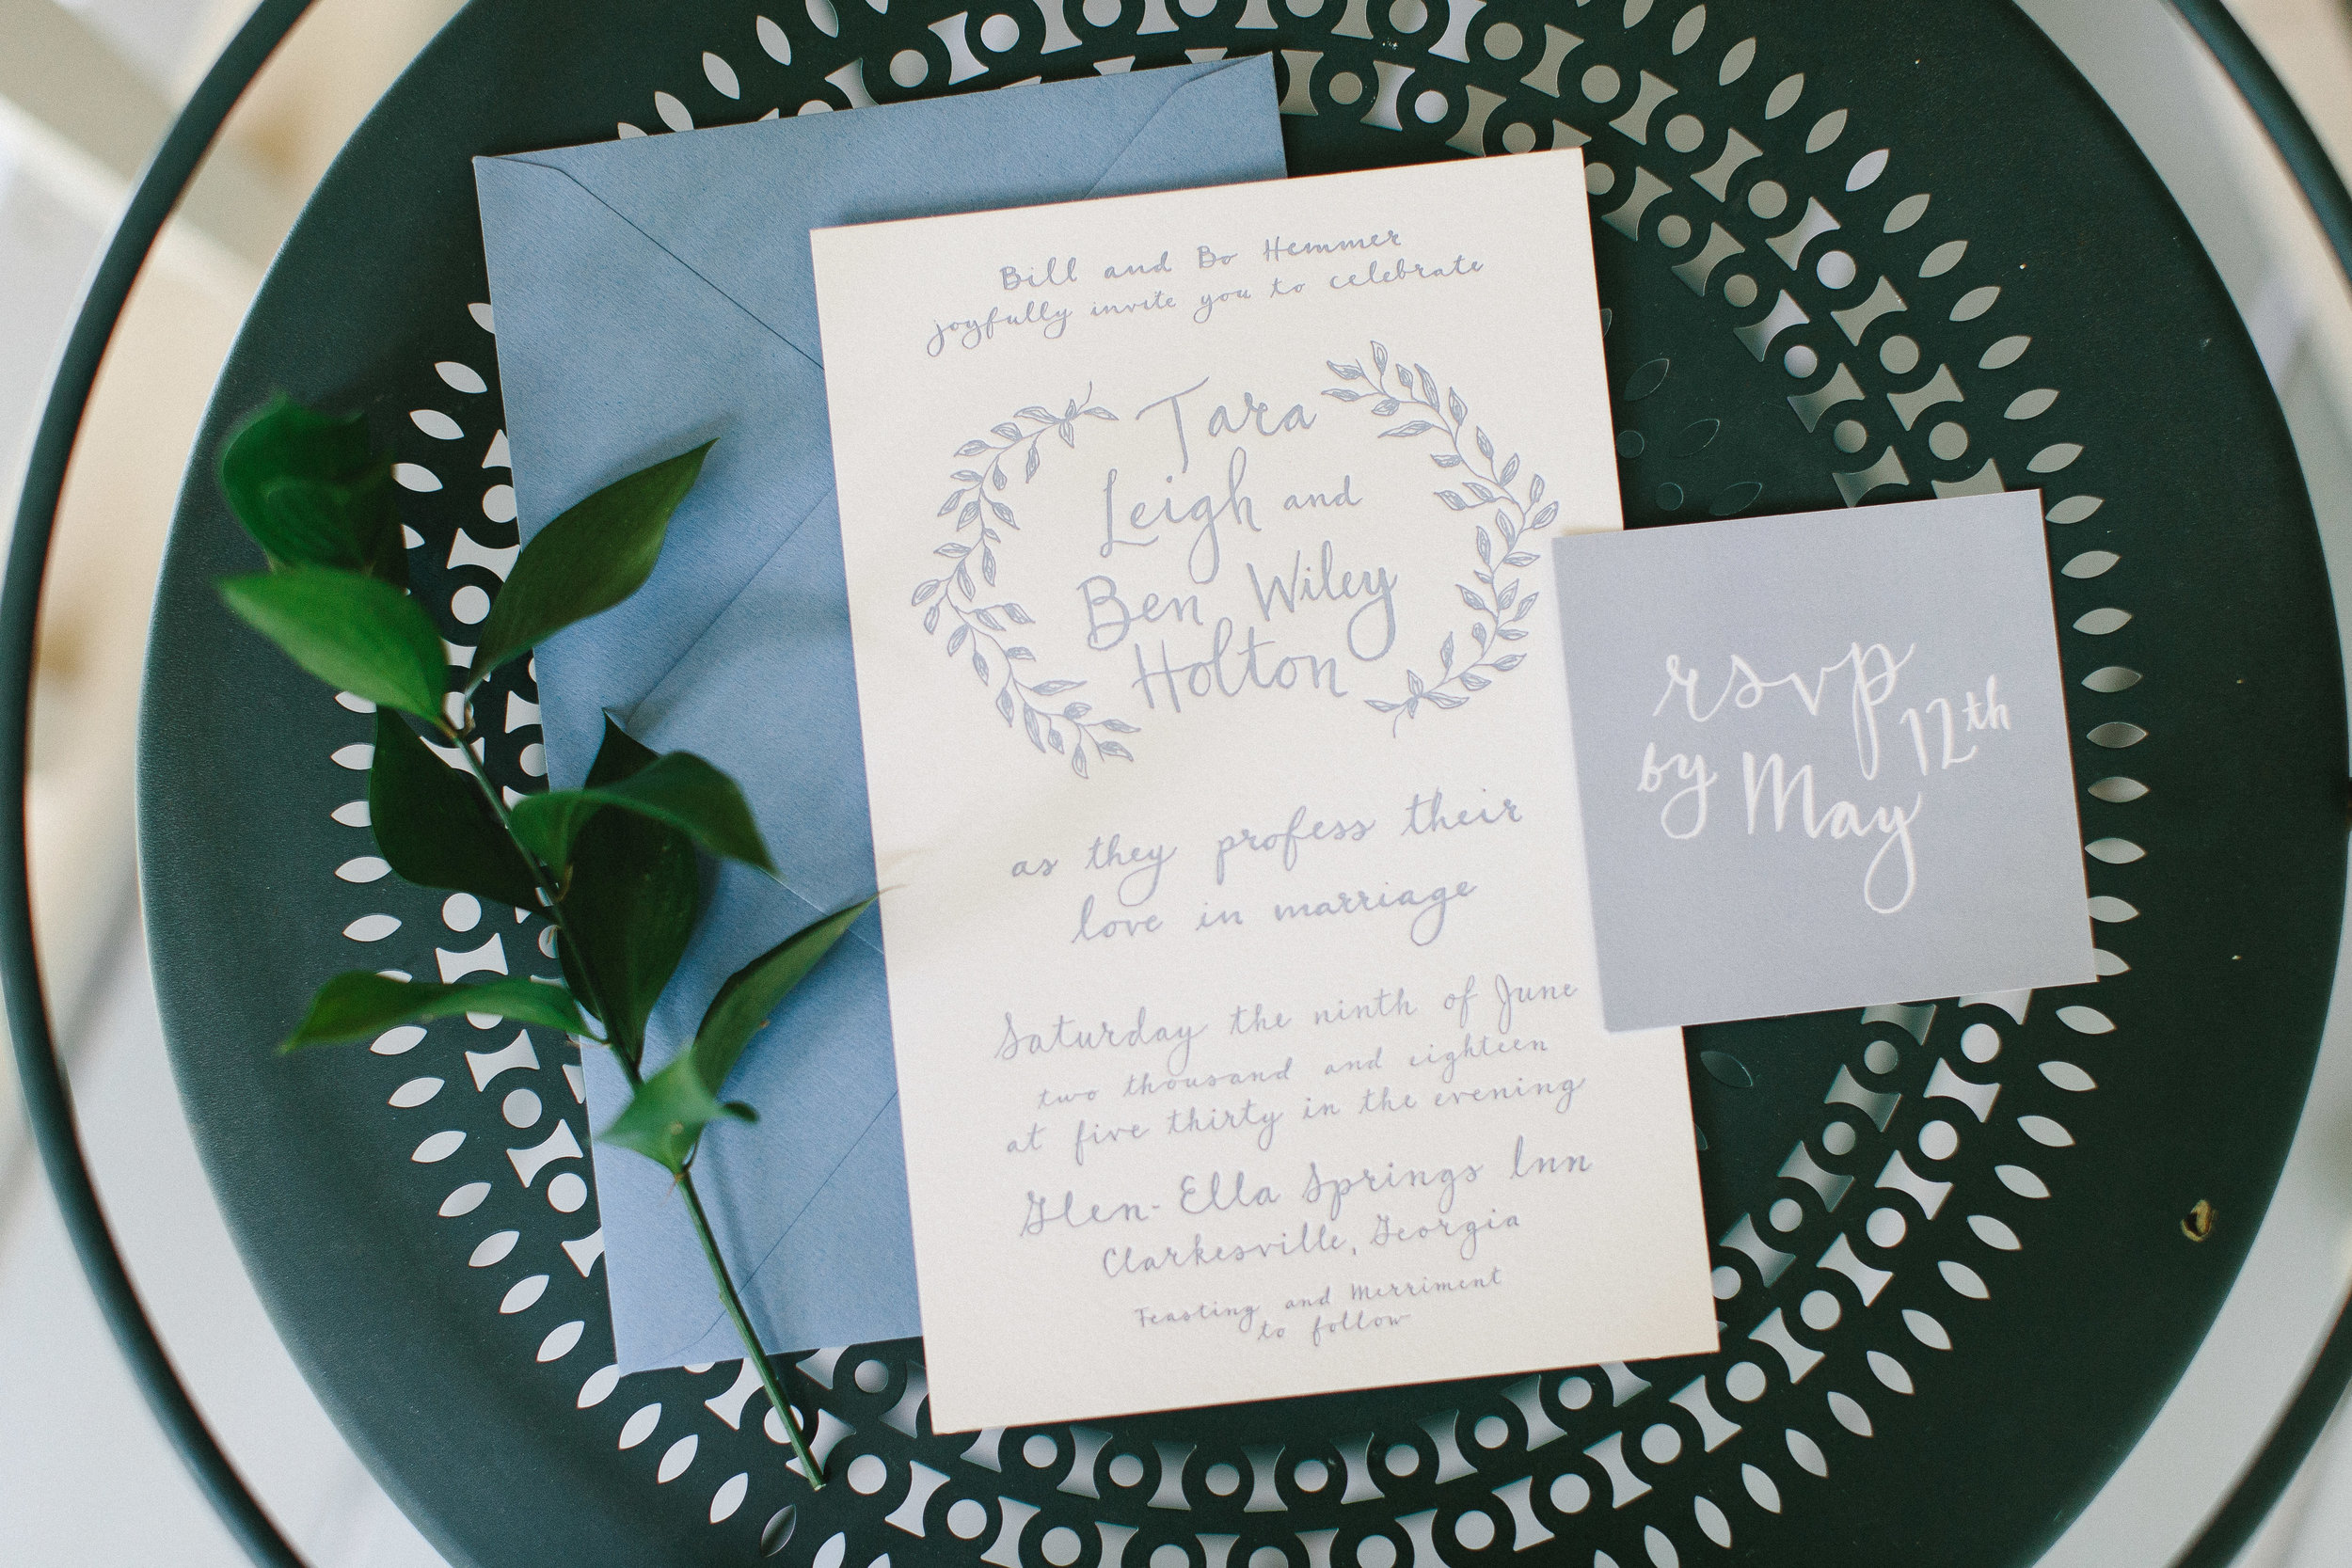 Bill and Bo Hemmer
joyfully invite you to celebrate
Tara
Leigh and
Ben Wiley
Holton
as they profess their
love in marriage
Saturday the ninth of June
two thousand and eighteen
at five thirty in the evening
Glen-Ella Springs Inn
Clarkesville, Georgia
Feasting and Merriment
to follow
rsvp
by May 12th